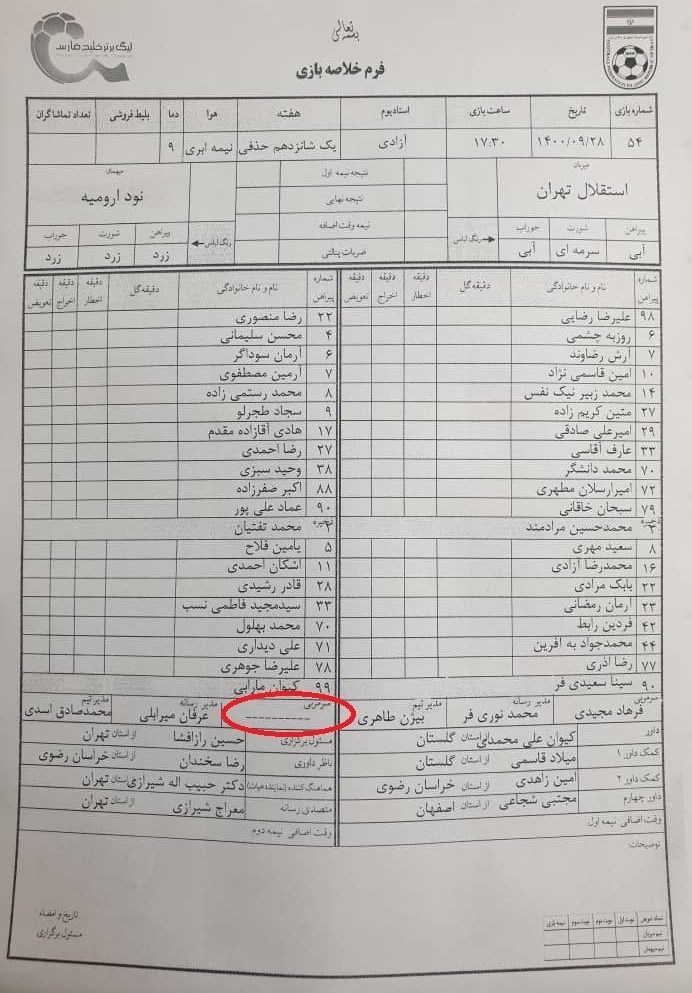 بسمه تعالی
لیگ برتر خلیج فارس
فرم خلاصه بازی
شماره بازی تاریخ ساعت بازی استادیوم هفته هوا دما بلیط فروشی تعداد تماشاگران
۵۴ ۱۴۰۰/۰۹/۲۸ ۱۷:۳۰ آزادی یک شانزدهم حذفی نیمه ابری ۹
میزبان
استقلال تهران
پیراهن شورت جوراب
آبی سرمه ای آبی
رنگ لباس
نتیجه نیمه اول
نتیجه نهایی
نیمه وقت اضافه
ضربات پنالتی
میهمان
نود ارومیه
رنگ لباس
پیراهن شورت جوراب
زرد زرد زرد
شماره پیراهن نام و نام خانوادگی دقیقه گل دقیقه اخطار دقیقه اخراج دقیقه تعویض
۹۸ علیرضا رضایی
۶ روزبه چشمی
۷ آرش رضاوند
۱۰ امین قاسمی نژاد
۱۴ محمد زبیر نیک نفس
۲۷ متین کریم زاده
۲۹ امیرعلی صادقی
۳۳ عارف آقاسی
۷۰ محمد دانشگر
۷۲ امیرارسلان مطهری
۷۹ سبحان خاقانی
ذخیره
۲ محمدحسین مرادمند
۸ سعید مهری
۱۶ محمدرضا آزادی
۲۲ بابک مرادی
۲۳ آرمان رمضانی
۴۲ فردین رابط
۴۴ محمدجواد به آفرین
۷۷ رضا آذری
۹۰ سینا سعیدی فر
سرمربی فرهاد مجیدی مدیر رسانه محمد نوری فر مدیر تیم بیژن طاهری
شماره پیراهن نام و نام خانوادگی دقیقه گل دقیقه اخطار دقیقه اخراج دقیقه تعویض
۲۲ رضا منصوری
۴ محسن سلیمانی
۶ آرمان سوداگر
۷ آرمین مصطفوی
۸ محمد رستمی زاده
۹ سجاد طجرلو
۱۷ هادی آقازاده مقدم
۲۷ رضا احمدی
۳۸ وحید سبزی
۸۸ اکبر صفرزاده
۹۰ عماد علی پور
ذخیره
۲ محمد تفتیان
۵ یامین فلاح
۱۱ اشکان احمدی
۲۸ قادر رشیدی
۳۳ سیدمجید فاطمی نسب
۷۰ محمد بهلول
۷۱ علی دیداری
۷۸ علیرضا جوهری
۹۹ کیوان مارابی
سرمربی ---------- مدیر رسانه عرفان میرابلی مدیر تیم محمدصادق اسدی
داور کیوان علی محمدی از استان گلستان
کمک داور ۱ میلاد قاسمی از استان گلستان
کمک داور ۲ امین زاهدی از استان خراسان رضوی
داور چهارم مجتبی شجاعی از استان اصفهان
وقت اضافی نیمه اول
مسئول برگزاری حسین رازافشا از استان تهران
ناظر داوری رضا سخندان از استان خراسان رضوی
هماهنگ کننده (نماینده هیات) دکتر حبیب اله شیرازی از استان تهران
متصدی رسانه معراج شیرازی از استان تهران
وقت اضافی نیمه دوم
توضیحات:
تاریخ و امضاء
مسئول برگزاری
تعداد تعویض نوبت اول نوبت دوم نوبت سوم نیمه بازی
تیم میزبان
تیم میهمان